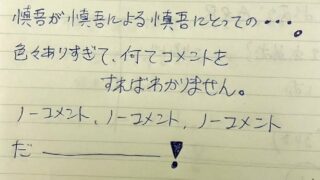 慎吾が慎吾による慎吾にとっての・・・。
色々ありすぎて、何てコメントを
すればわかりません。
ノーコメント、ノーコメント、ノーコメント
だ―――――!